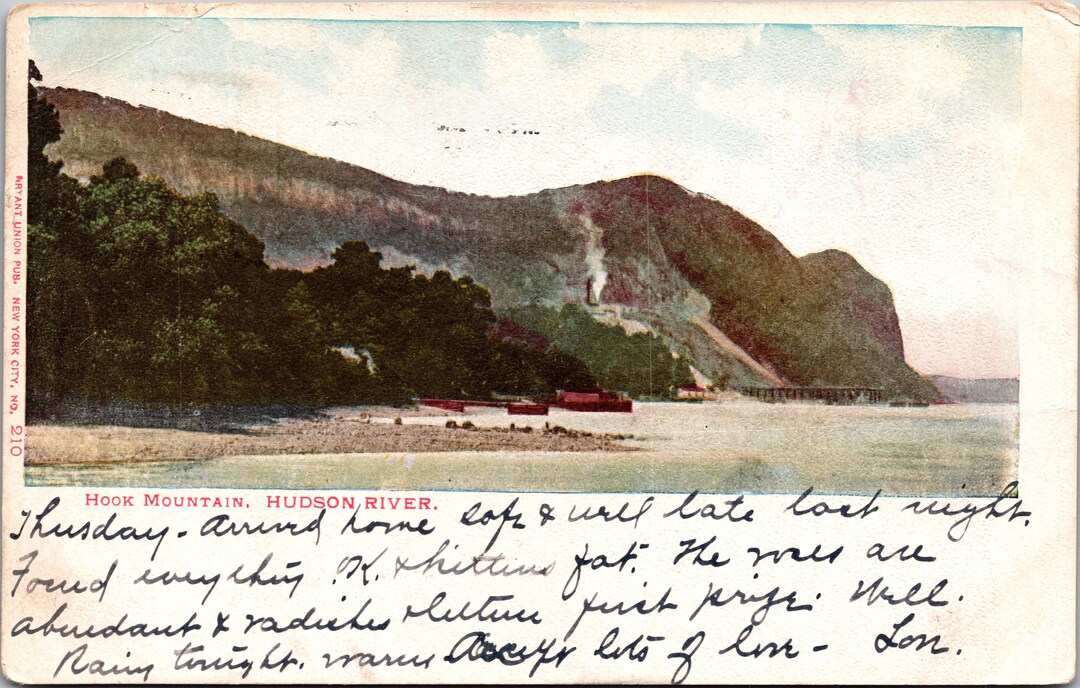 BRYANT UNION PUB. NEW YORK CITY, NO. 210
HOOK MOUNTAIN, HUDSON RIVER.
Thursday. Arrived home safe & well late last night.
Found everything O.K. & kittens fat. The roses are
abundant & radishes & lettuce first prize. Well.
Rainy tonight. warm. Accept lots of love - Lon.